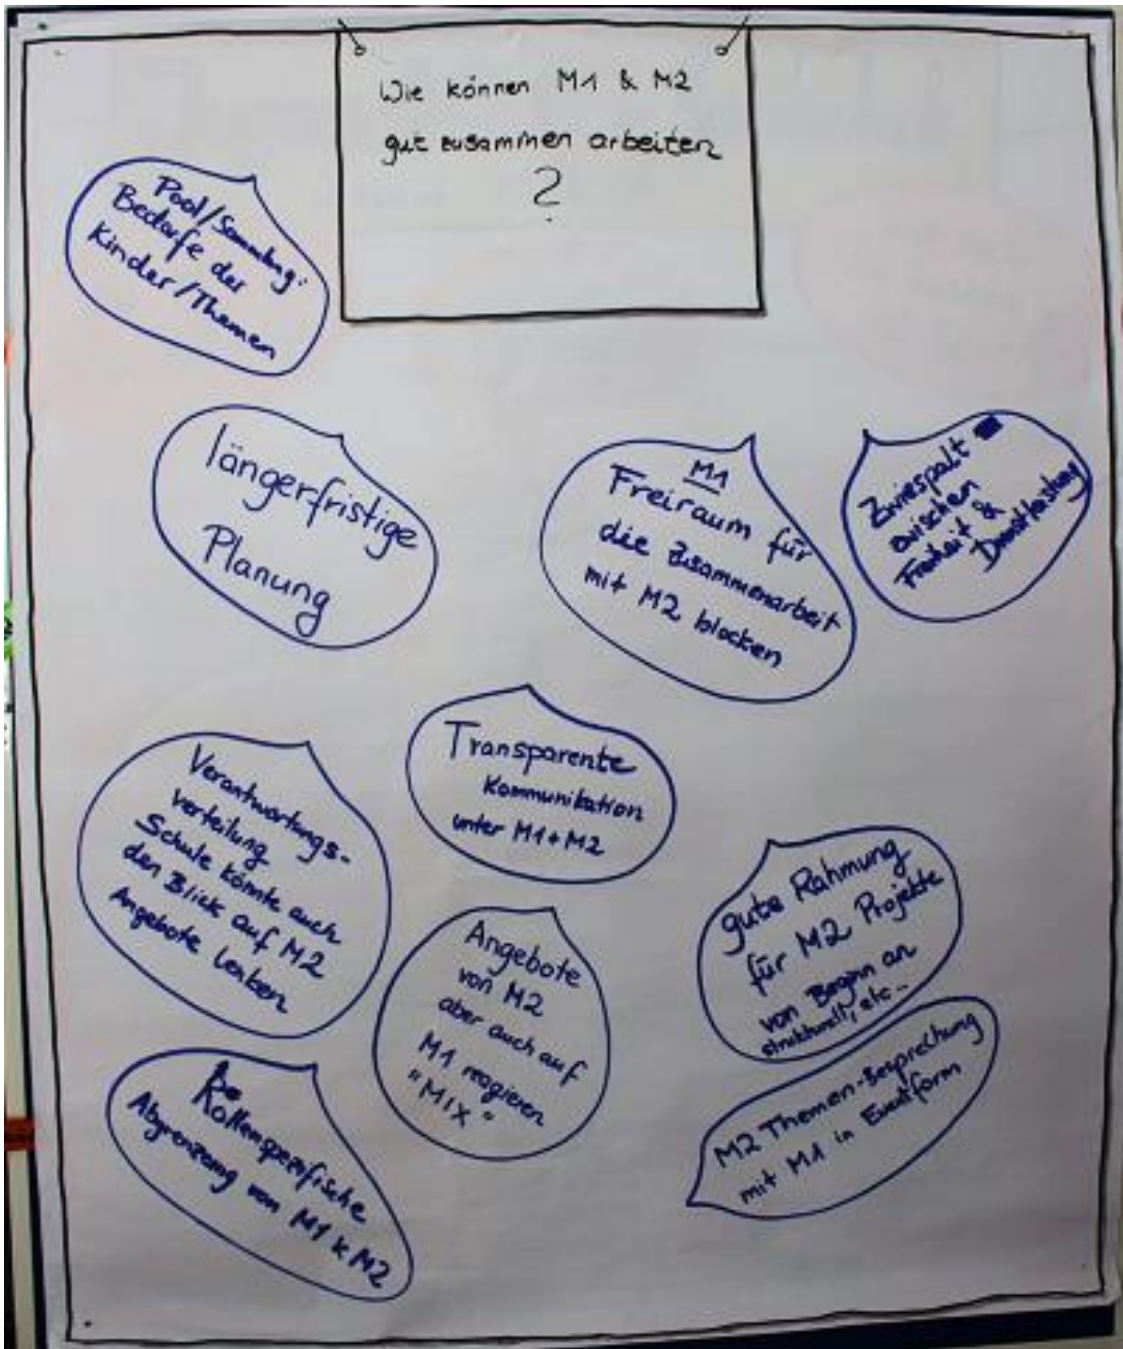 Wie können M1 & M2
gut zusammen arbeiten
?
Pool/Sammlung:
Bedarfe der
Kinder/Themen
längerfristige
Planung
M1
Freiraum für
die Zusammenarbeit
mit M2 blocken
Zwiespalt
zwischen
Freiheit &
Dienstleistung
Transparente
Kommunikation
unter M1+M2
Verantwortungs-
verteilung
Schule könnte auch
den Blick auf M2
Angebote lenken
Angebote
von M2
aber auch auf
M1 reagieren
"MIX"
gute Rahmung
für M2 Projekte
von Beginn an
strukturell, etc...
M2 Themen-Besprechung
mit M1 in Eventform
Rollenspezifische
Abgrenzung von M1 & M2